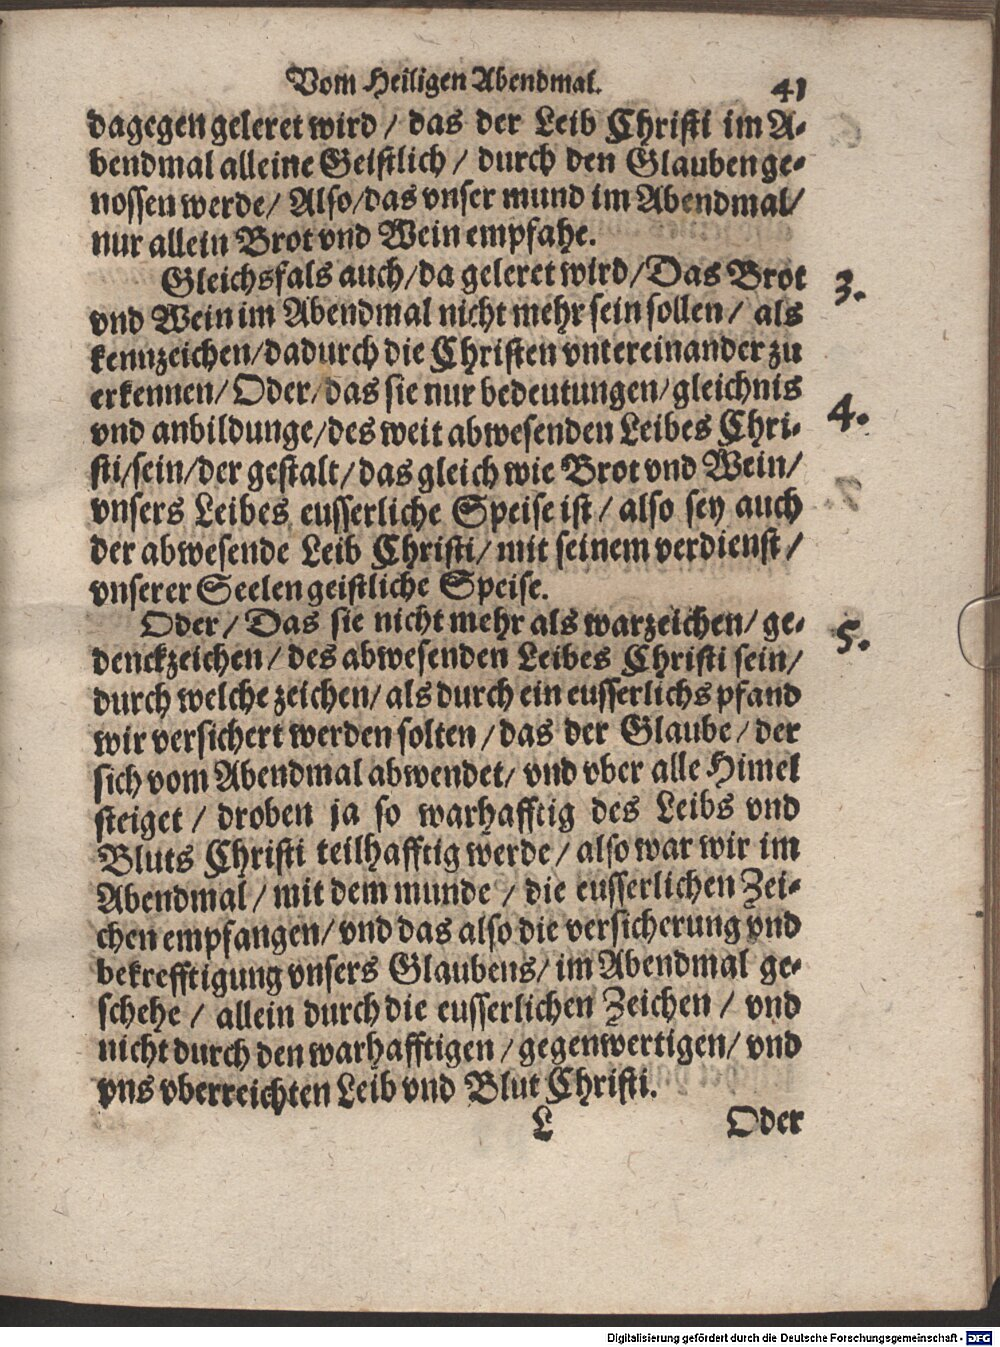 Vom Heiligen Abendmal. 41
dagegen geleret wird / das der Leib Christi im A-
bendmal alleine Geistlich / durch den Glauben ge-
nossen werde / Also / das vnser mund im Abendmal /
nur allein Brot vnd Wein empfahe.
Gleichsfals auch / da geleret wird / Das Brot 3.
vnd Wein im Abendmal nicht mehr sein sollen / als
kennzeichen / dadurch die Christen vntereinander zu
erkennen / Oder / das sie nur bedeutungen / gleichnis 4.
vnd anbildunge / des weit abwesenden Leibes Chri-
sti / sein / der gestalt / das gleich wie Brot vnd Wein /
vnsers Leibes eusserliche Speise ist / also sey auch
der abwesende Leib Christi / mit seinem verdienst /
vnserer Seelen geistliche Speise.
Oder / Das sie nicht mehr als warzeichen / ge- 5.
denckzeichen / des abwesenden Leibes Christi sein /
durch welche zeichen / als durch ein eusserlichs pfand
wir versichert werden solten / das der Glaube / der
sich vom Abendmal abwendet / vnd vber alle Himel
steiget / droben ja so warhafftig des Leibs vnd
Bluts Christi teilhafftig werde / also war wir im
Abendmal / mit dem munde / die eusserlichen Zei-
chen empfangen / vnd das also die versicherung vnd
bekrefftigung vnsers Glaubens / im Abendmal ge-
schehe / allein durch die eusserlichen Zeichen / vnd
nicht durch den warhafftigen / gegenwertigen / vnd
vns vberreichten Leib vnd Blut Christi.
L Oder
Digitalisierung gefördert durch die Deutsche Forschungsgemeinschaft - DFG